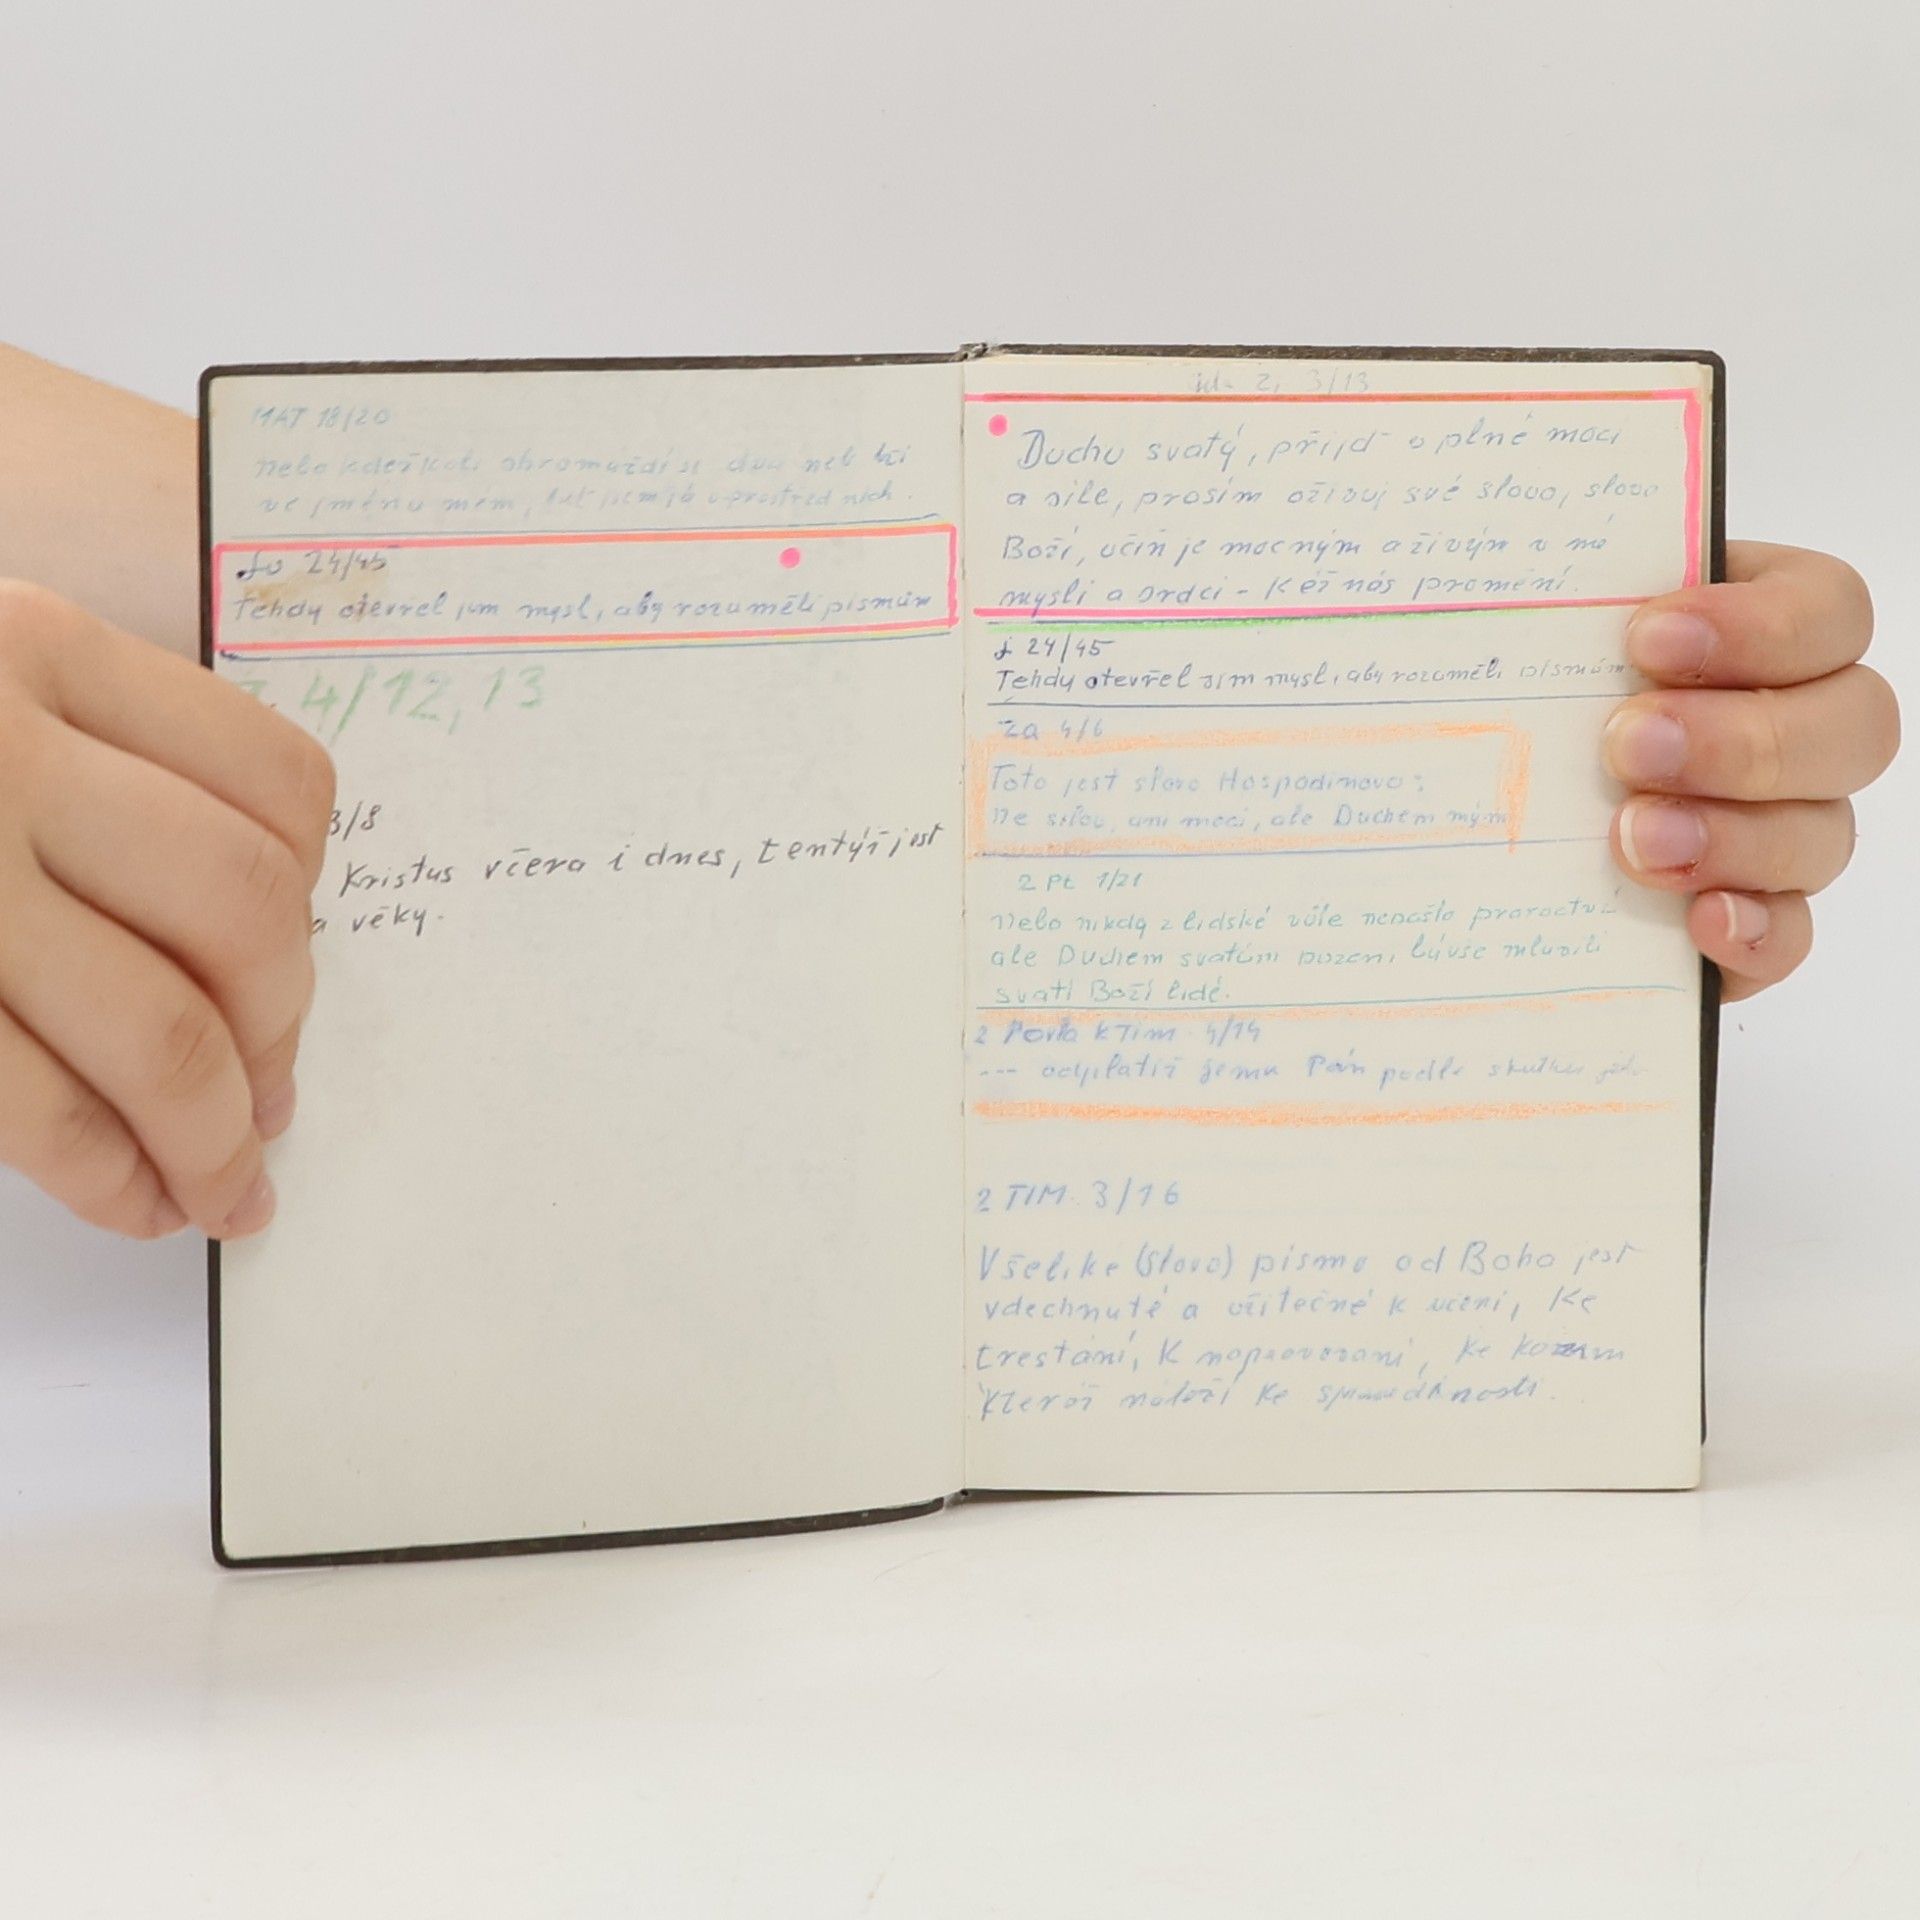 MAT 18/20
Nebo kdežkoli shromáždí se dva neb tři
ve jménu mém, tuť jsem já uprostřed nich.
Lu 24/45
Tehdy otevřel jim mysl, aby rozuměli písmům
4/12,13
3/8
Kristus včera i dnes, tentýž jest
a věky.
2, 3/13
Duchu svatý, přijď v plné moci
a síle, prosím oživuj své slovo, slovo
Boží, učiň je mocným a živým v mé
mysli a srdci - kéž nás promění.
L 24/45
Tehdy otevřel jim mysl, aby rozuměli písmům
Za 4/6
Toto jest slovo Hospodinovo:
Ne silou, ani mocí, ale Duchem mým
2 Pt 1/21
Nebo nikdy z lidské vůle nepošlo proroctví
ale Duchem svatým puzeni bývše mluvili
svatí Boží lidé.
2 Pavla k Tim 4/14
--- odplatiž jemu Pán podle skutků jeho
2 TIM 3/16
Všeliké (slovo) písmo od Boha jest
vdechnuté a užitečné k učení, ke
trestání, k napravování, ke
kteráž náleží ke spravedlnosti.